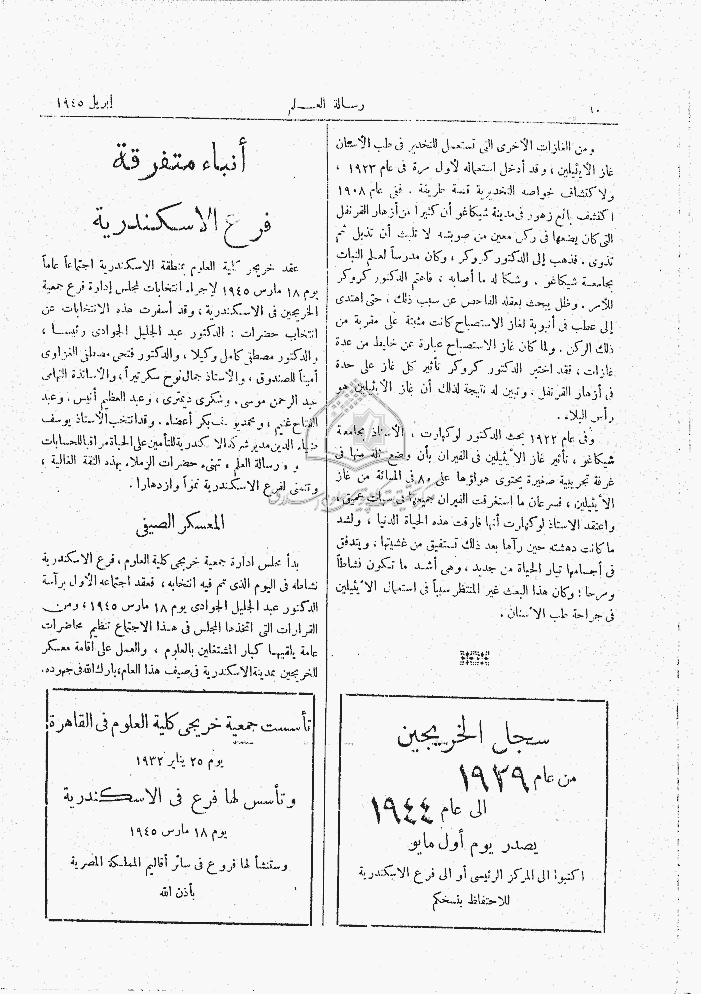 ١٠
رسالة العلم
إبريل ١٩٤٥
ومن الغازات الأخرى التى تستعمل للتخدير فى طب الأسنان
غاز الأيثيلين ، وقد أدخل استعماله لأول مرة فى عام ١٩٢٣ ،
ولاكتشاف خواصه التخديرية قصة طريفة . ففى عام ١٩٠٨
اكتشف بائع زهور فى مدينة شيكاغو أن كثيراً من أزهار القرنفل
التى كان يضعها فى ركن معين من صوبته لا تلبث أن تذبل ثم
تذوى . فذهب إلى الدكتور كروكر ، وكان مدرساً لعلم النبات
بجامعة شيكاغو . وشكا له ما أصابه ، فاهتم الدكتور كروكر
للأمر . وظل يبحث بعقله الفاحص عن سبب ذلك ، حتى اهتدى
إلى عطب فى أنبوبة لغاز الاستصباح كانت مثبتة على مقربة من
ذلك الركن . ولما كان غاز الاستصباح عبارة عن خليط من عدة
غازات ، فقد اختبر الدكتور كروكر تأثير كل غاز على حدة
فى أزهار القرنفل ، وتبين له نتيجة لذلك أن غاز الأيثيلين هو
رأس البلاء .
وفى عام ١٩٢٢ بحث الدكتور لوكهارت ، الأستاذ بجامعة
شيكاغو ، تأثير غاز الأيثيلين فى الفيران بأن وضع قلة منها فى
غرفة تجريبية صغيرة يحتوى هواؤها على ٨٠ فى المائة من غاز
الأيثيلين ، فسرعان ما استغرقت الفيران جميعها فى سبات عميق ،
واعتقد الاستاذ لوكهارت أنها فارقت هذه الحياة الدنيا ، ولشد
ما كانت دهشته حين رآها بعد ذلك تستفيق من غشيتها ، ويتدفق
فى أجسامها تيار الحياة من جديد ، وهى أشد ما تكون نشاطاً
ومرحا ؛ وكان هذا البحث غير المنتظر سبباً فى استعمال الأيثيلين
فى جراحة طب الأسنان .
سجل الخريجين
من عام ١٩٢٩
الى عام ١٩٤٤
يصدر يوم أول مايو
اكتبوا الى المركز الرئيسى أو الى فرع الاسكندرية
للاحتفاظ بنسخكم
أنباء متفرقة
فرع الاسكندرية
عقد خريجو كلية العلوم بمنطقة الاسكندرية اجتماعاً عاماً
يوم ١٨ مارس ١٩٤٥ لإجراء انتخابات لمجلس إدارة فرع جمعية
الخريجين فى الاسكندرية ، وقد أسفرت هذه الانتخابات عن
انتخاب حضرات : الدكتور عبد الجليل الجوادى رئيسا ،
والدكتور مصطفى كامل وكيلا ، والدكتور فتحى مصطفى الغزاوى
أميناً للصندوق ، والأستاذ جمال نوح سكرتيراً ، والأساتذة التهامى
عبد الرحمن موسى . وشكرى ديمترى ، وعبد العظيم أنيس . وعبد
الفتاح غنيم ، ومحمد يوسف بكر أعضاء . وقد انتخب الأستاذ يوسف
ضياء الدين مدير شركة الاسكندرية للتأمين على الحياة مراقبا للحسابات
و « رسالة العلم » تهنىء حضرات الزملاء بهذه الثقة الغالية ،
وتتمنى لفرع الاسكندرية نمواً وازدهارا .
المعسكر الصيفى
بدأ مجلس ادارة جمعية خريجى كلية العلوم ، فرع الاسكندرية
نشاطه فى اليوم الذى تم فيه انتخابه ، فعقد اجتماعه الأول برآسة
الدكتور عبد الجليل الجوادى يوم ١٨ مارس ١٩٤٥ ، ومن
القرارات التى اتخذها المجلس فى هذا الاجتماع تنظيم محاضرات
عامة يلقيها كبار المشتغلين بالعلوم ، والعمل على اقامة معسكر
للخريجين بمدينة الاسكندرية فى صيف هذا العام ، بارك الله فى جهوده .
تأسست جمعية خريجى كلية العلوم فى القاهرة
يوم ٢٥ يناير ١٩٣٢
وتأسس لها فرع فى الاسكندرية
يوم ١٨ مارس ١٩٤٥
وستنشأ لها فروع فى سائر أقاليم المملكة المصرية
بأذن الله